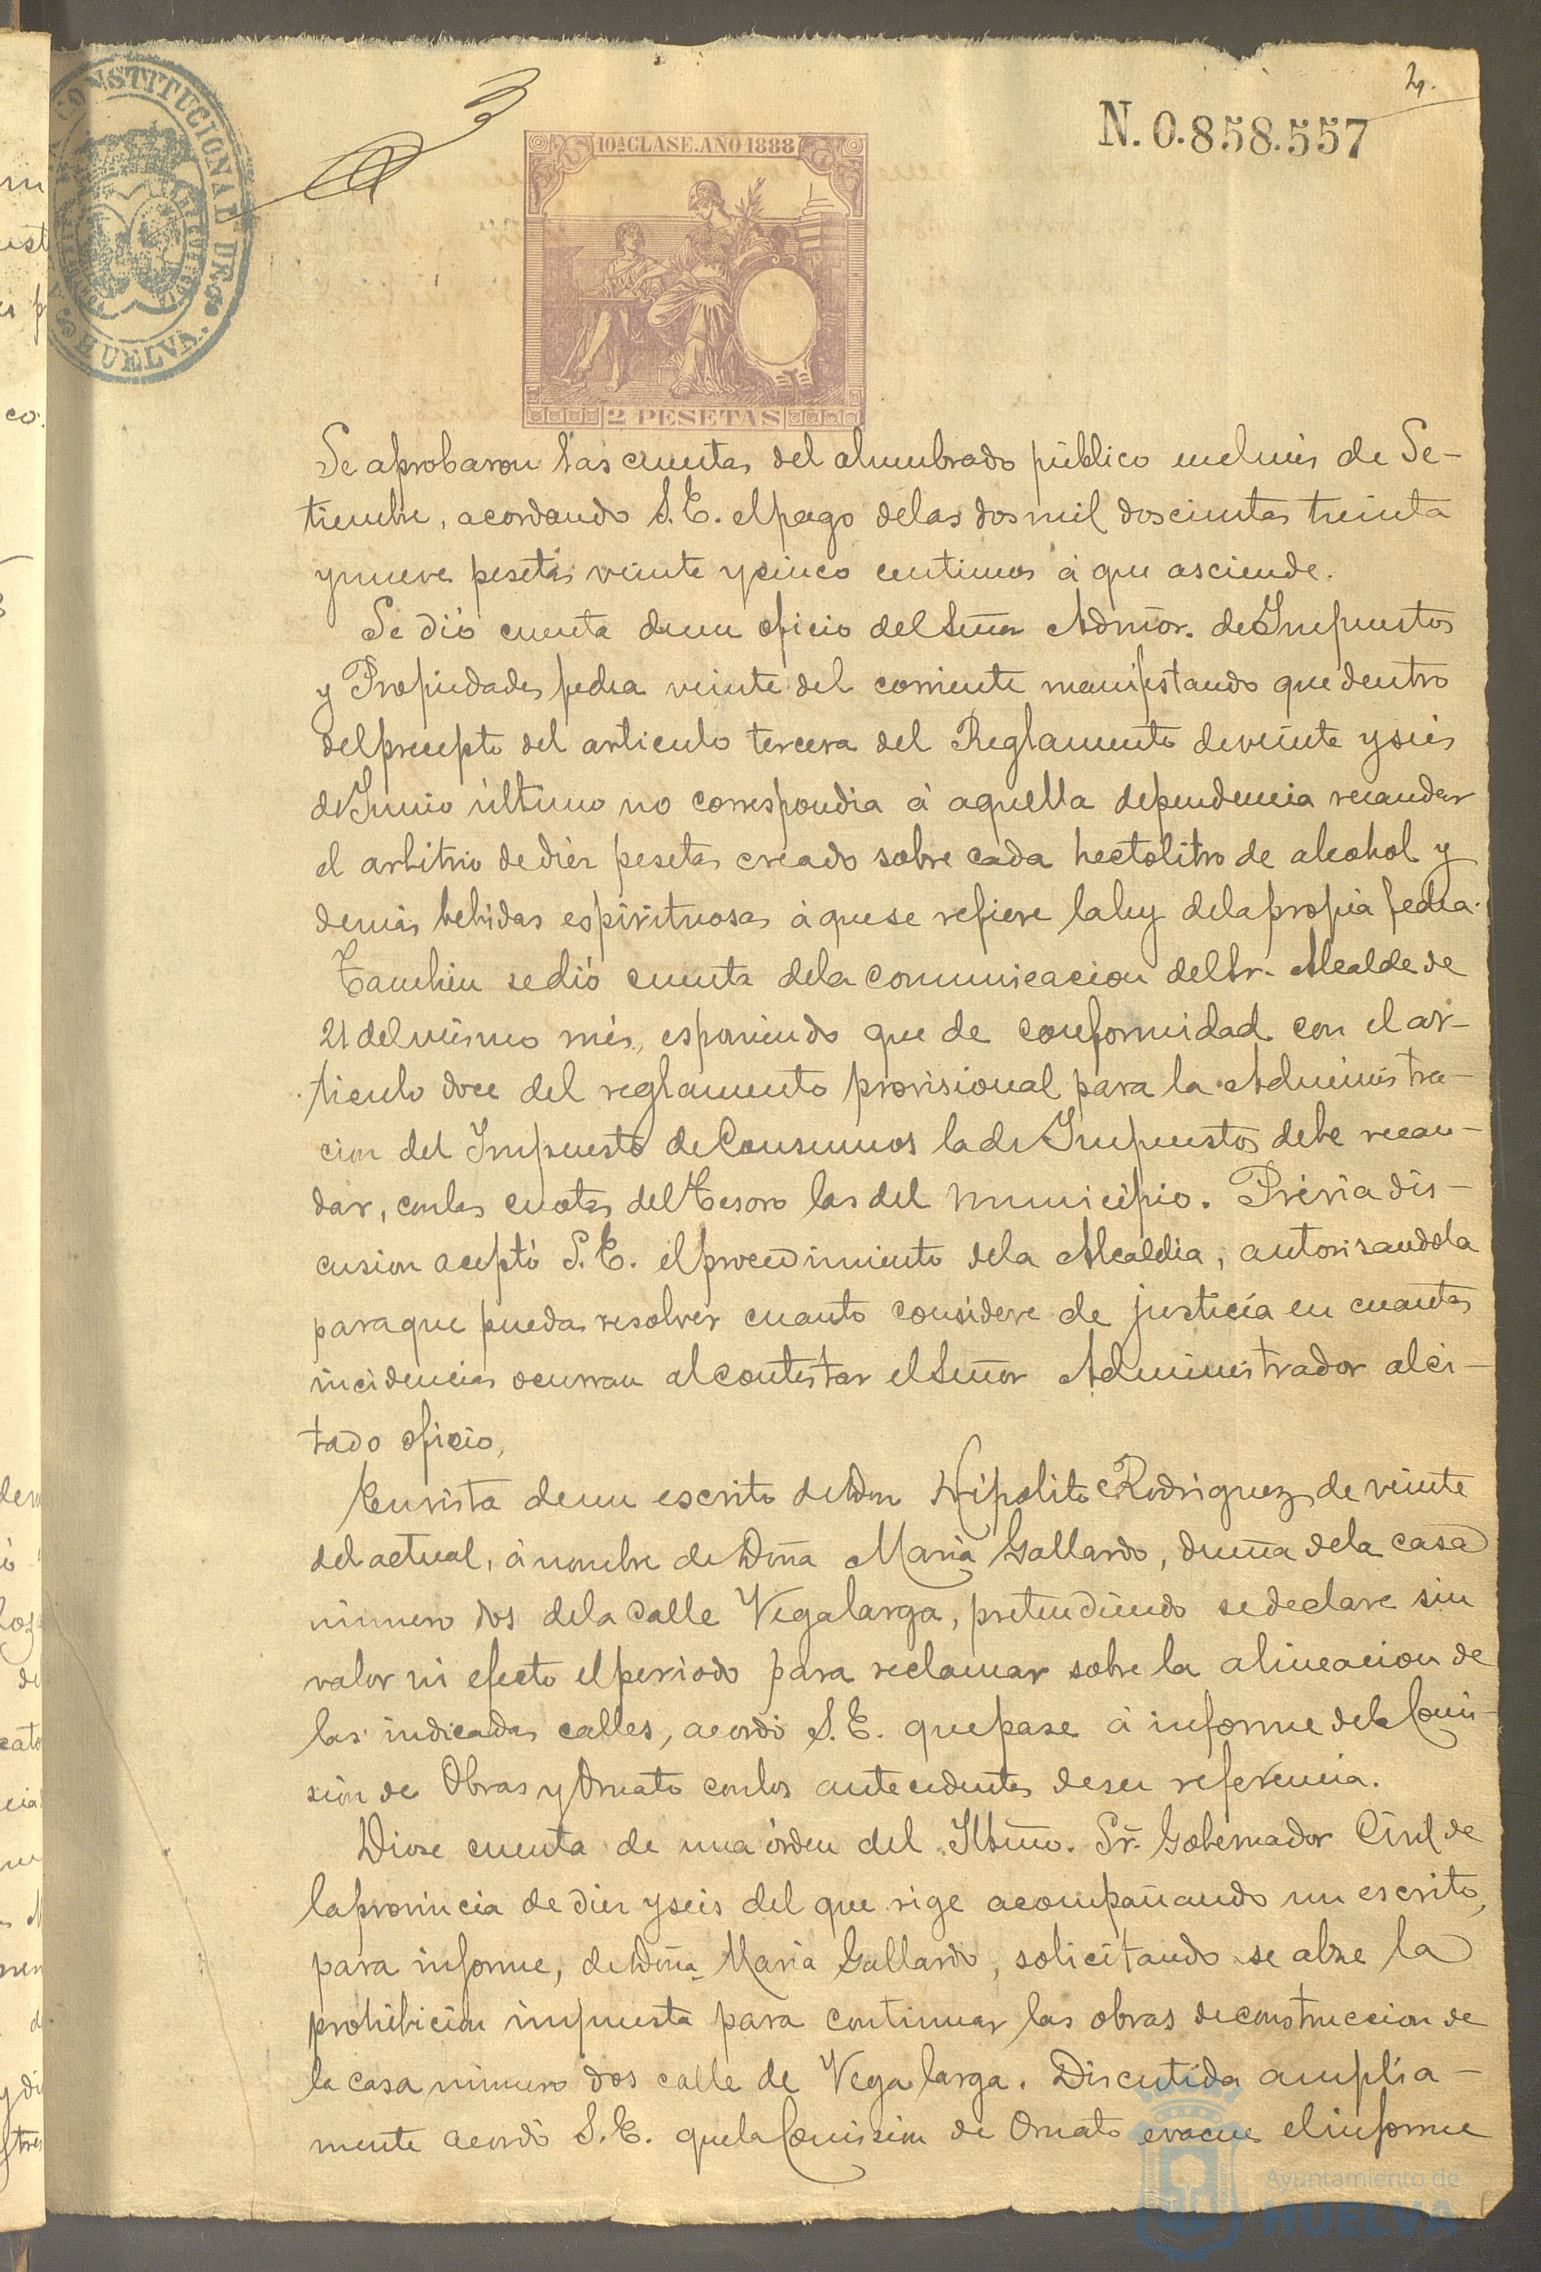 2.
N. 0.858.557
CONSTITUCIONAL DE HUELVA.
10ª CLASE. AÑO 1888
2 PESETAS
Se aprobaron las cuentas del alumbrado público en el més de Se-
tiembre, acordando S. E. el pago de las dos mil doscientas treinta
y nueve pesetas veinte y cinco centimos á que asciende.
Se dió cuenta de un oficio del Señor Admor. de Impuestos
y Propiedades fecha veinte del corriente manifestando que dentro
del precepto del articulo tercero del Reglamento de veinte y seis
de Junio último no correspondia á aquella dependencia recaudar
el arbitrio de diez pesetas creado sobre cada hectolitro de alcohol y
demás bebidas espirituosas á que se refiere la ley de la propia fecha.
Tambien se dió cuenta de la comunicacion del Sr. Alcalde de
21 del mismo més, esponiendo que de conformidad con el ar-
ticulo doce del reglamento provisional para la Administra-
cion del Impuesto de Consumos la de Impuestos debe recau-
dar, con las cuotas del Tesoro las del Municipio. Prévia dis-
cusion aceptó S. E. el procedimiento de la Alcaldia, autorisandola
para que pueda resolver cuanto considere de justicia en cuantas
incidencias ocurran al contestar el Señor Administrador al ci-
tado oficio,
En vista de un escrito de Don Hipolito Rodriguez de veinte
del actual, á nombre de Doña Maria Gallardo, dueña de la casa
número dos de la calle Vegalarga, pretendiendo se declare sin
valor ni efecto el periodo para reclamar sobre la alineacion de
las indicadas calles, acordó S. E. que pase á informe de la Comi-
sion de Obras y Ornato con los antecedentes de su referencia.
Diose cuenta de una órden del Iltmo. Sr. Gobernador Civil de
la provincia de diez y seis del que rige acompañando un escrito,
para informe, de Doña Maria Gallardo, solicitando se alze la
prohibicion impuesta para continuar las obras de construccion de
la casa número dos calle de Vega larga. Discutida amplia-
mente acordó S. E. que la Comision de Ornato evacue el informe
Ayuntamiento de
HUELVA